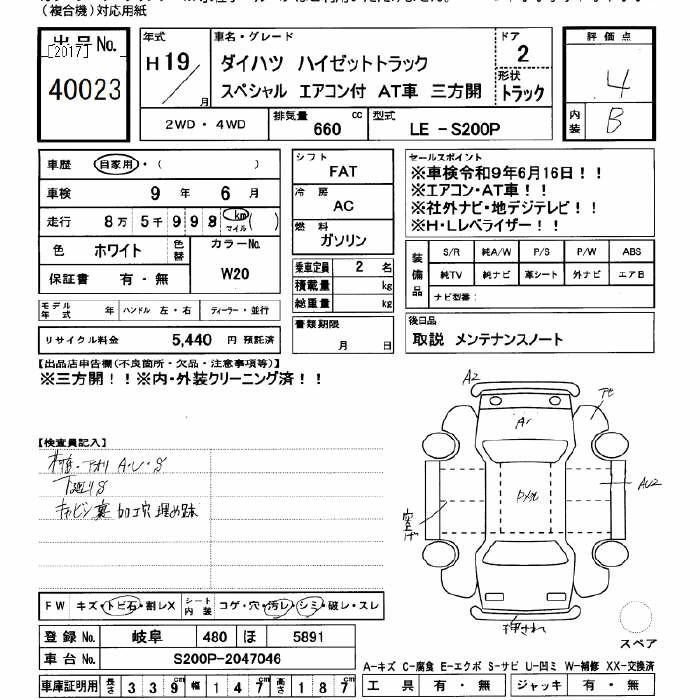 (複合機)対応用紙
出品No.
[2017]
40023
年式
H19/
月
車名・グレード
ダイハツ ハイゼットトラック
スペシャル エアコン付 AT車 三方開
ドア
2
形状
トラック
評価点
4
内装
B
2WD・4WD
排気量
660
cc
型式
LE-S200P
車歴
自家用・( )
車検
9 年 6 月
走行
8万 5千 9 9 8 km マイル ( )
色
ホワイト
色替
カラーNo.
W20
保証書
有・無
シフト
FAT
冷房
AC
燃料
ガソリン
乗車定員 2 名
積載量 kg
総重量 kg
セールスポイント
※車検令和9年6月16日!!
※エアコン・AT車!!
※社外ナビ・地デジテレビ!!
※H・Lレベライザー!!
装備品
S/R 純A/W P/S P/W ABS
純TV 純ナビ 革シート 外ナビ エアB
ナビ型番:
モデル年式 年 ハンドル 左・右 ディーラー・並行
リサイクル料金 5,440 円 預託済
書類期限
月 日
後日品
取説 メンテナンスノート
【出品店申告欄(不良箇所・欠品・注意事項等)】
※三方開!!※内・外装クリーニング済!!
【検査員記入】
アオリ A・U・S
下廻りS
キャビン裏 加工穴 埋め跡
A2
A1
AU2
押され
FW キズ・トビ石・割レX
シート内装 コゲ・穴・汚レ・シミ・破レ・スレ
登録No. 岐阜 480 ほ 5891
車台No. S200P-2047046
車庫証明用 長さ 339cm 幅 147cm 高さ 187cm
スペア
A-キズ C-腐食 E-エクボ S-サビ U-凹ミ W-補修 XX-交換済
工具 有・無 ジャッキ 有・無